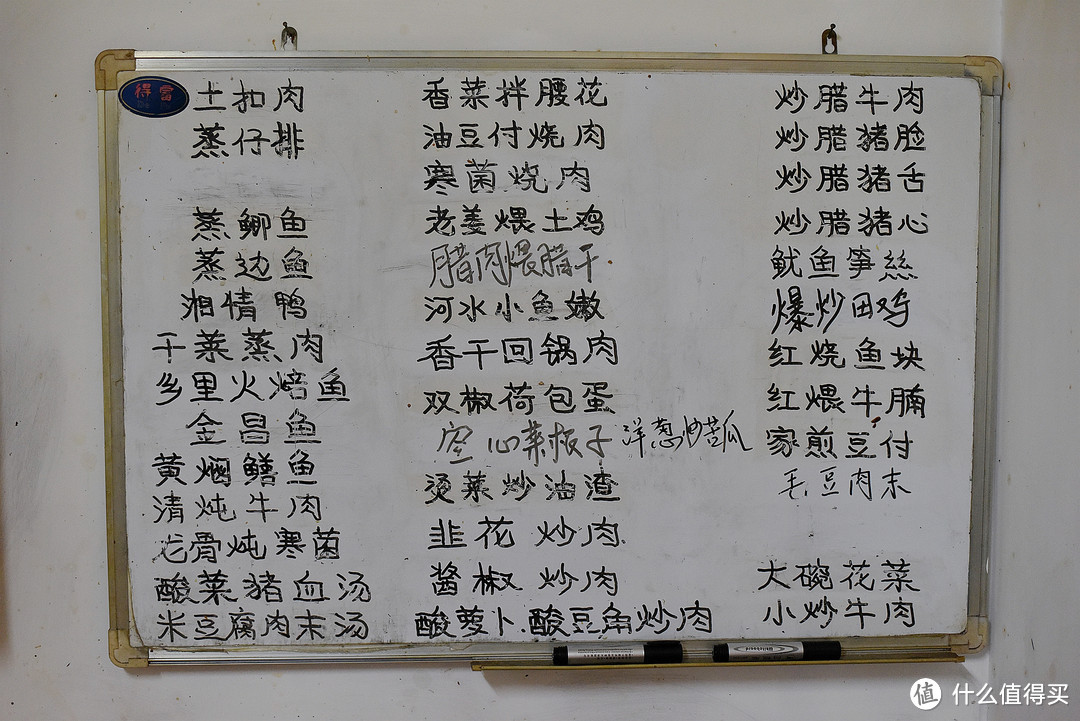 得富
土扣肉
蒸仔排
蒸鲫鱼
蒸边鱼
湘情鸭
干菜蒸肉
乡里火焙鱼
金昌鱼
黄焖鳝鱼
清炖牛肉
龙骨炖寒菌
酸菜猪血汤
米豆腐肉末汤
香菜拌腰花
油豆付烧肉
寒菌烧肉
老姜煨土鸡
腊肉煨腊干
河水小鱼嫩
香干回锅肉
双椒荷包蛋
空心菜根子
洋葱炒苦瓜
烫菜炒油渣
韭花炒肉
酱椒炒肉
酸萝卜.酸豆角炒肉
炒腊牛肉
炒腊猪脸
炒腊猪舌
炒腊猪心
鱿鱼笋丝
爆炒田鸡
红烧鱼块
红煨牛腩
家煎豆付
毛豆肉末
大碗花菜
小炒牛肉
值 什么值得买